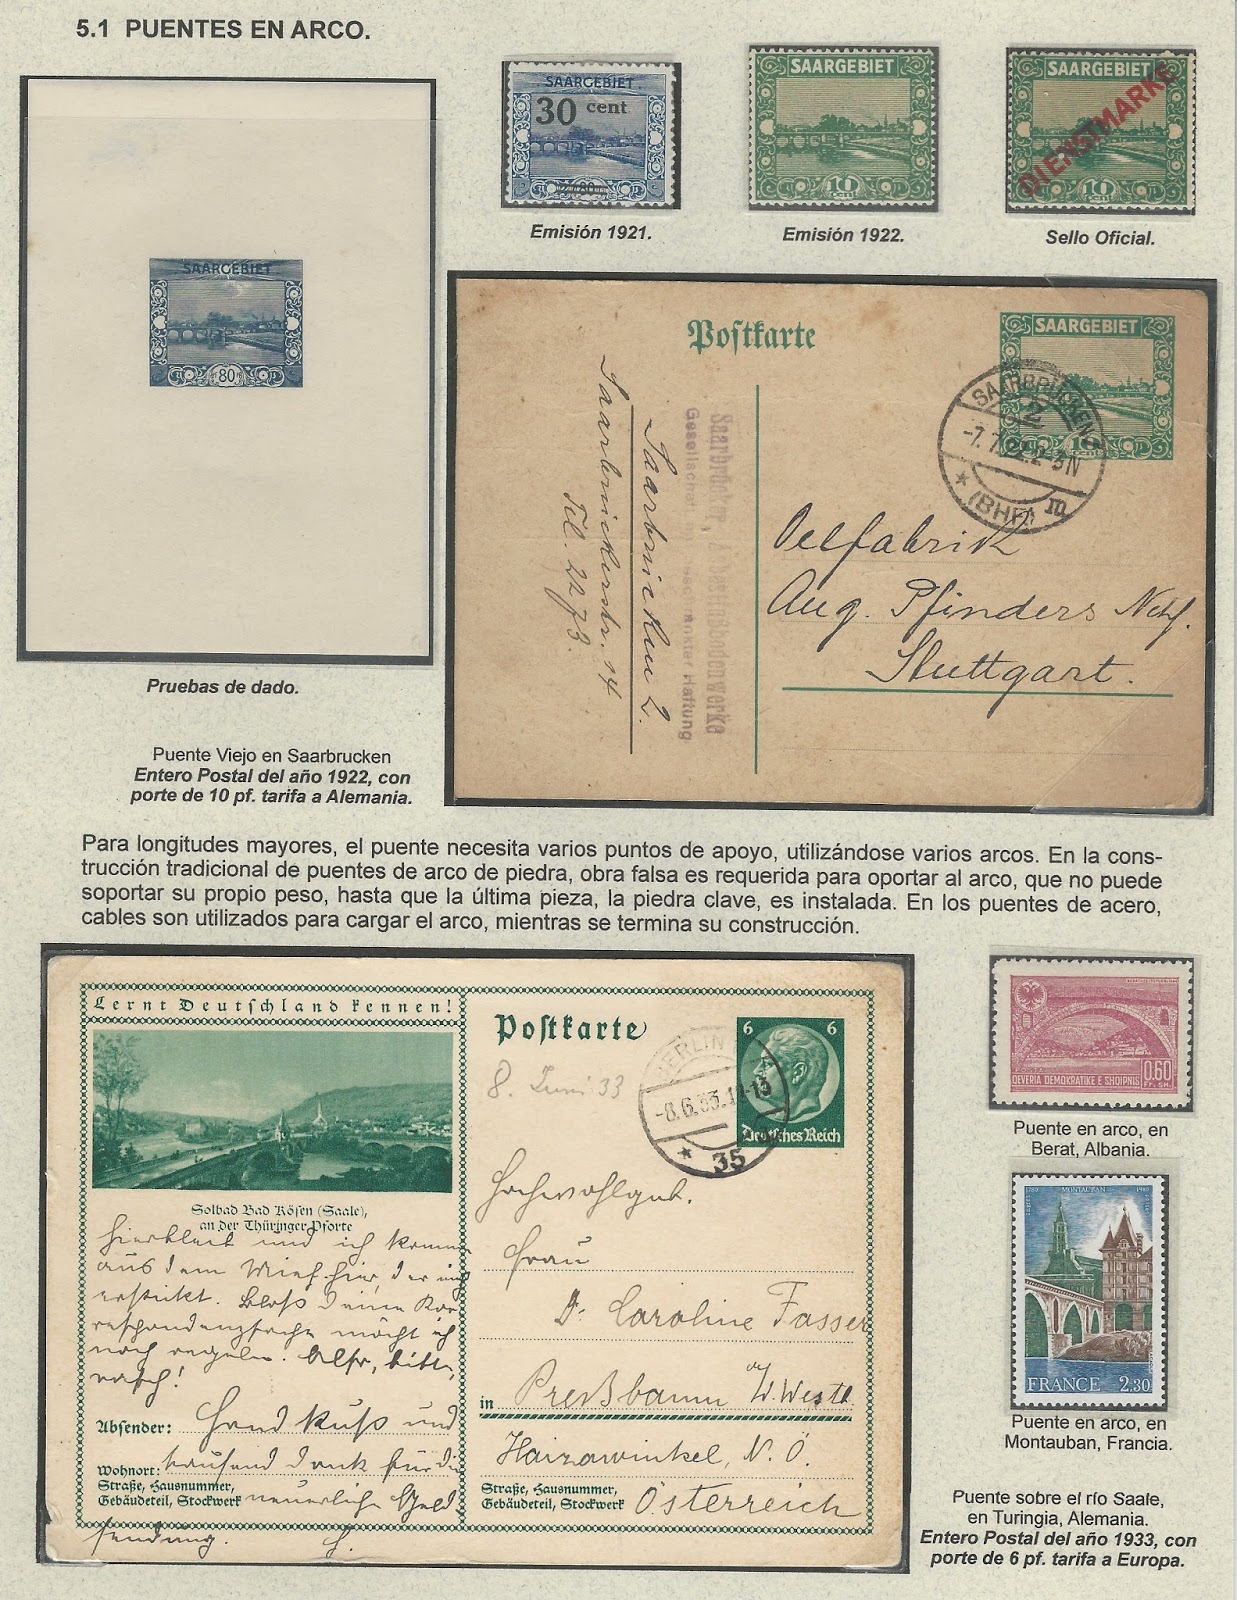 5.1 PUENTES EN ARCO.
SAARGEBIET
30 cent
80
Emisión 1921.
SAARGEBIET
10
Cent
Emisión 1922.
SAARGEBIET
DIENSTMARKE
10
Cent
Sello Oficial.
SAARGEBIET
80
Pruebas de dado.
Puente Viejo en Saarbrucken
Entero Postal del año 1922, con
porte de 10 pf. tarifa a Alemania.
Postkarte
SAARGEBIET
10
SAARBRÜCKEN
2
-7.7.22.2-3N
* (BHF) m
Saarbrücker
Gesellschaft mit beschränkter Haftung
Saarbrücken 2.
Saarbrückerstr. 14
Tel. 2273.
Oelfabrik
Aug. Pfinders Nchf.
Stuttgart.
Para longitudes mayores, el puente necesita varios puntos de apoyo, utilizándose varios arcos. En la cons-
trucción tradicional de puentes de arco de piedra, obra falsa es requerida para oportar al arco, que no puede
soportar su propio peso, hasta que la última pieza, la piedra clave, es instalada. En los puentes de acero,
cables son utilizados para cargar el arco, mientras se termina su construcción.
Lernt Deutschland kennen!
Solbad Bad Kösen (Saale),
an der Thüringer Pforte
Postkarte
8. Juni 33
BERLIN
-8.6.33.12-13
* 35
6 6
Deutsches Reich
hierbleib und ich komme
aus dem Mief hier, der mich
erstickt. Bloß Deine Kor
respondenzsache möcht ich
noch regeln. Also, bitte,
rasch!
Absender: Handkuß und
Wohnort: tausend Dank für die
Straße, Hausnummer,
Gebäudeteil, Stockwerk neuerliche Geld
sendung.
Hochwohlgeb.
Frau
Dr. Caroline Fasser
in Preßbaum a/ W. Westb.
Haizawinkel, N. Ö.
Straße, Hausnummer,
Gebäudeteil, Stockwerk Österreich
0.60
FR. SH.
QEVERIA DEMOKRATIKE E SHQIPNIS
Puente en arco, en
Berat, Albania.
MONTAUBAN
FRANCE 2.30
Puente en arco, en
Montauban, Francia.
Puente sobre el río Saale,
en Turingia, Alemania.
Entero Postal del año 1933, con
porte de 6 pf. tarifa a Europa.